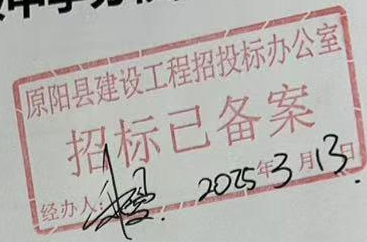 原阳县建设工程招投标办公室
招标已备案
经办人: 2025年3月13日